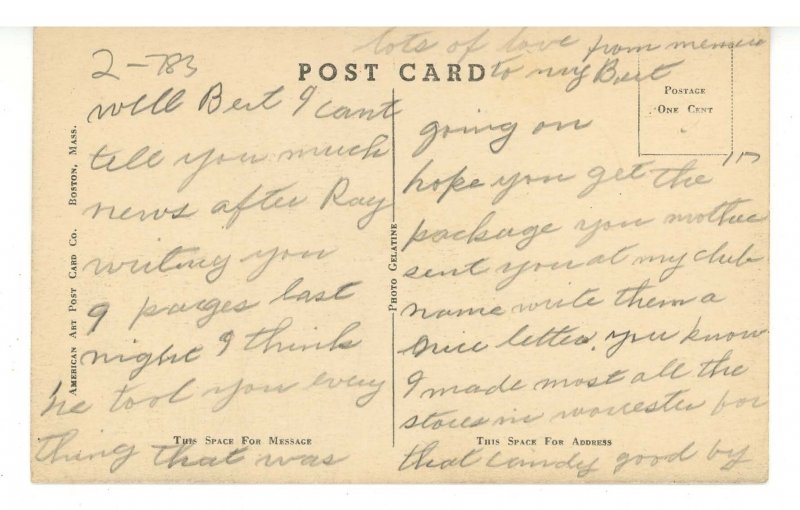 lots of love from
to my Bert
2-783
POST CARD
POSTAGE
ONE CENT
well Bert I cant
tell you much
news after Ray
writing you
9 paiges last
night I think
he tool you every
thing that was
going on
hope you get the
package you mother
sent you at my club
name write them a
nice letter. you know
I made most all the
stores in worcester for
that candy good by
AMERICAN ART POST CARD CO. BOSTON, MASS.
PHOTO GELATINE
THIS SPACE FOR MESSAGE
THIS SPACE FOR ADDRESS